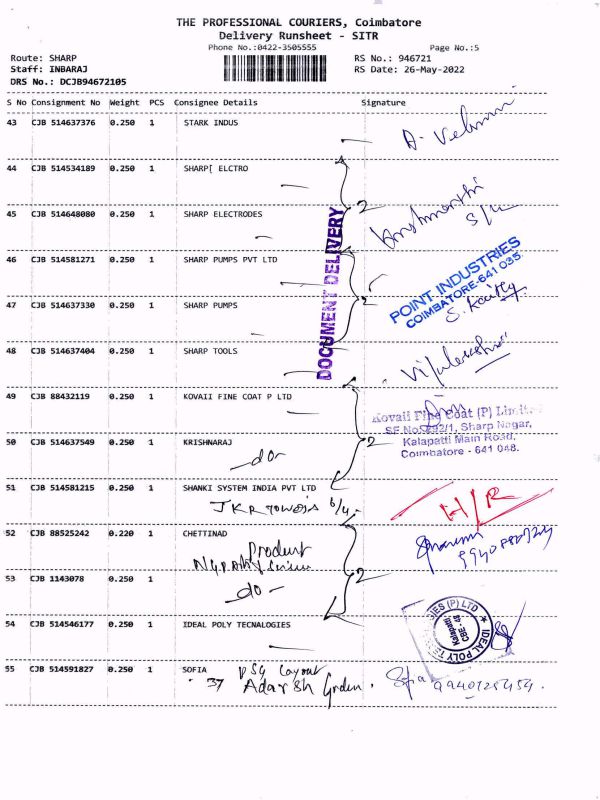 THE PROFESSIONAL COURIERS, Coimbatore
Delivery Runsheet - SITR
Phone No.:0422-3505555 Page No.:5
Route: SHARP RS No.: 946721
Staff: INBARAJ RS Date: 26-May-2022
DRS No.: DCJB94672105
S No Consignment No Weight PCS Consignee Details Signature
43 CJB 514637376 0.250 1 STARK INDUS
44 CJB 514534189 0.250 1 SHARP[ ELCTRO
2
45 CJB 514648080 0.250 1 SHARP ELECTRODES
DOCUMENT DELIVERY
46 CJB 514581271 0.250 1 SHARP PUMPS PVT LTD
POINT INDUSTRIES
COIMBATORE-641 035.
2
47 CJB 514637330 0.250 1 SHARP PUMPS
48 CJB 514637404 0.250 1 SHARP TOOLS
49 CJB 88432119 0.250 1 KOVAII FINE COAT P LTD
Kovaii Fine Coat (P) Limited
SF.No. 292/1, Sharp Nagar,
Kalapatti Main Road,
Coimbatore - 641 048.
50 CJB 514637549 0.250 1 KRISHNARAJ
2
do
51 CJB 514581215 0.250 1 SHANKI SYSTEM INDIA PVT LTD
H/R
52 CJB 88525242 0.220 1 CHETTINAD
Product
53 CJB 1143078 0.250 1
do
2
54 CJB 514546177 0.250 1 IDEAL POLY TECNALOGIES
IDEAL POLY
Kalapatti
CBE - 48
55 CJB 514591827 0.250 1 SOFIA PSG Layout
37 Adarsh Garden. Sofia